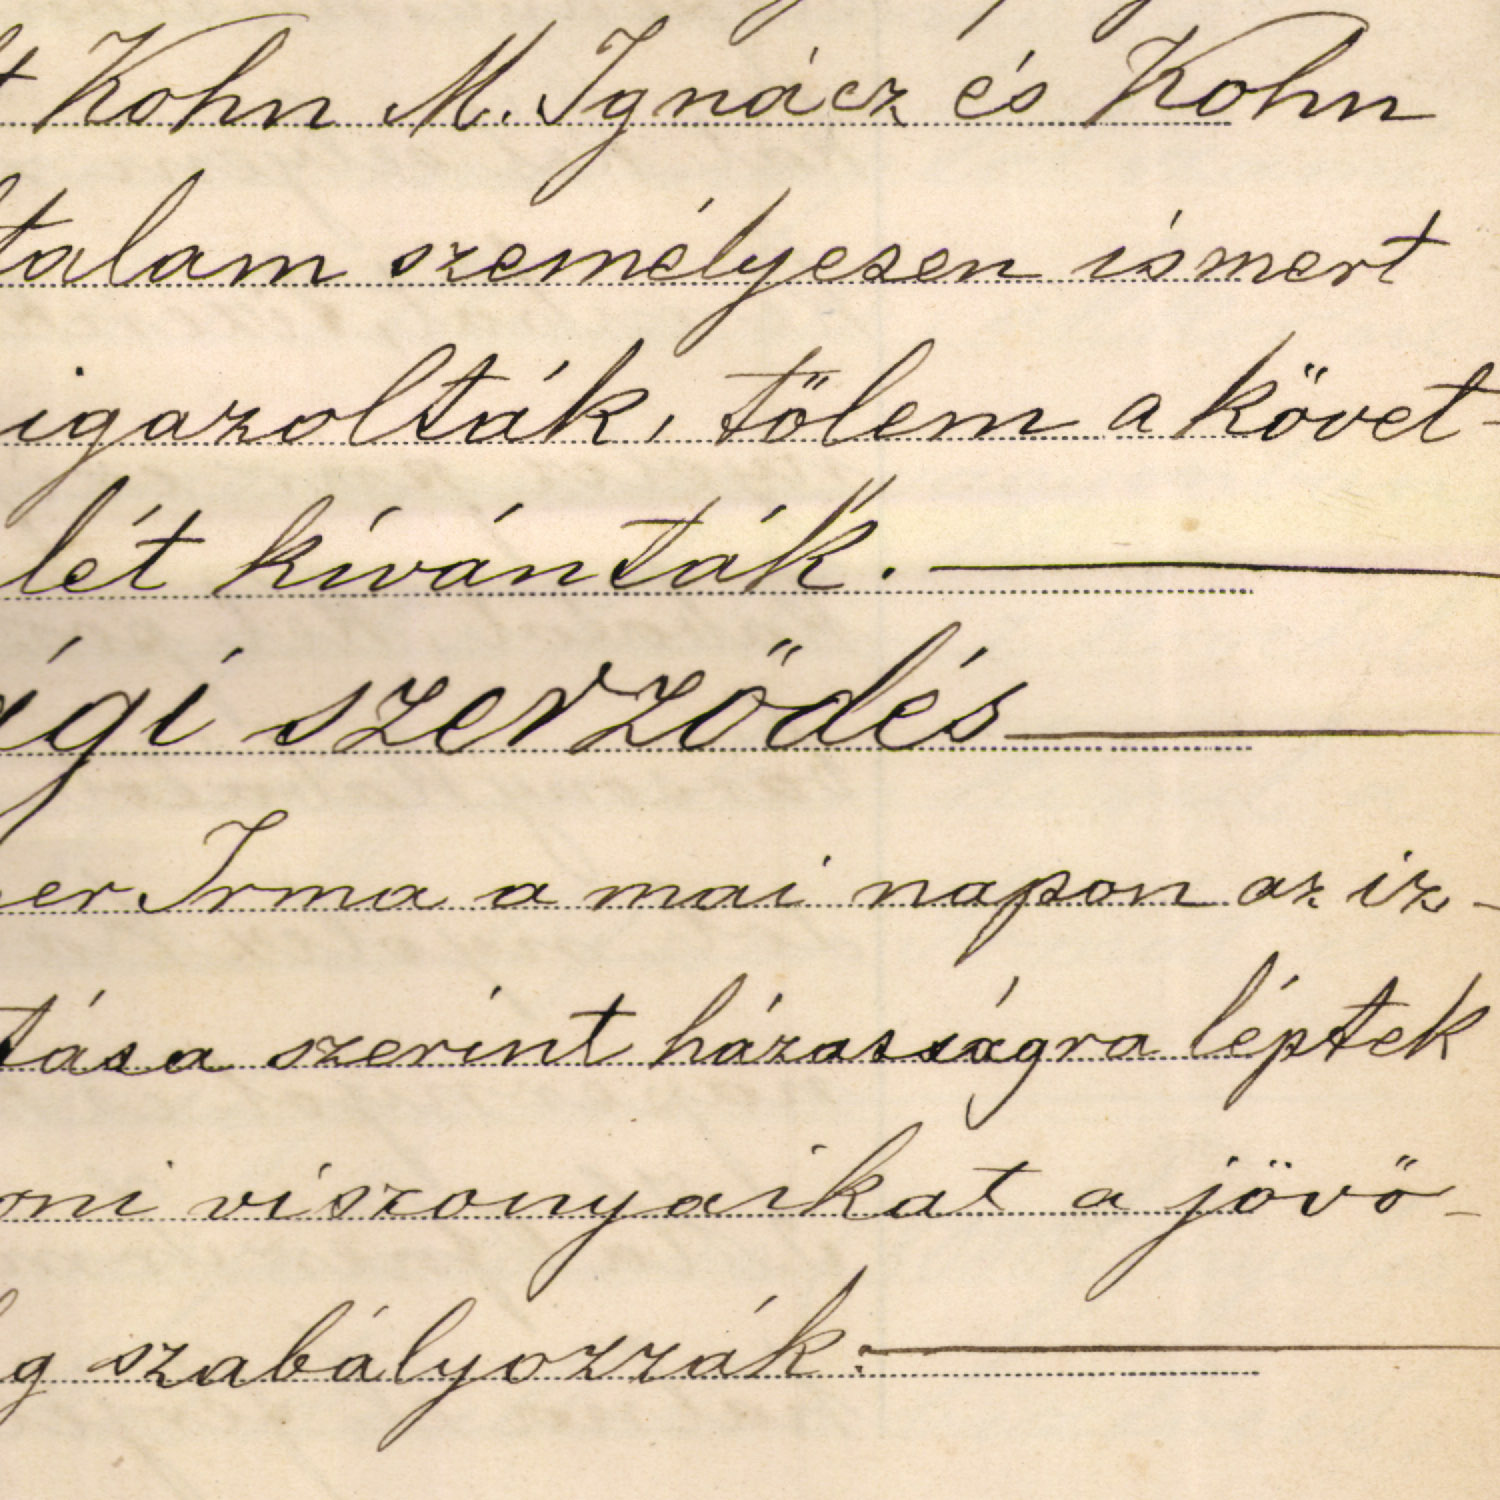 t Kohn M. Ignácz és Kohn
talam személyesen ismert
igazolták, tőlem a követ-
lét kívánták.
ági szerződés
er Irma a mai napon az iz-
tása szerint házasságra léptek
oni viszonyaikat a jövő-
g szabályozzák: